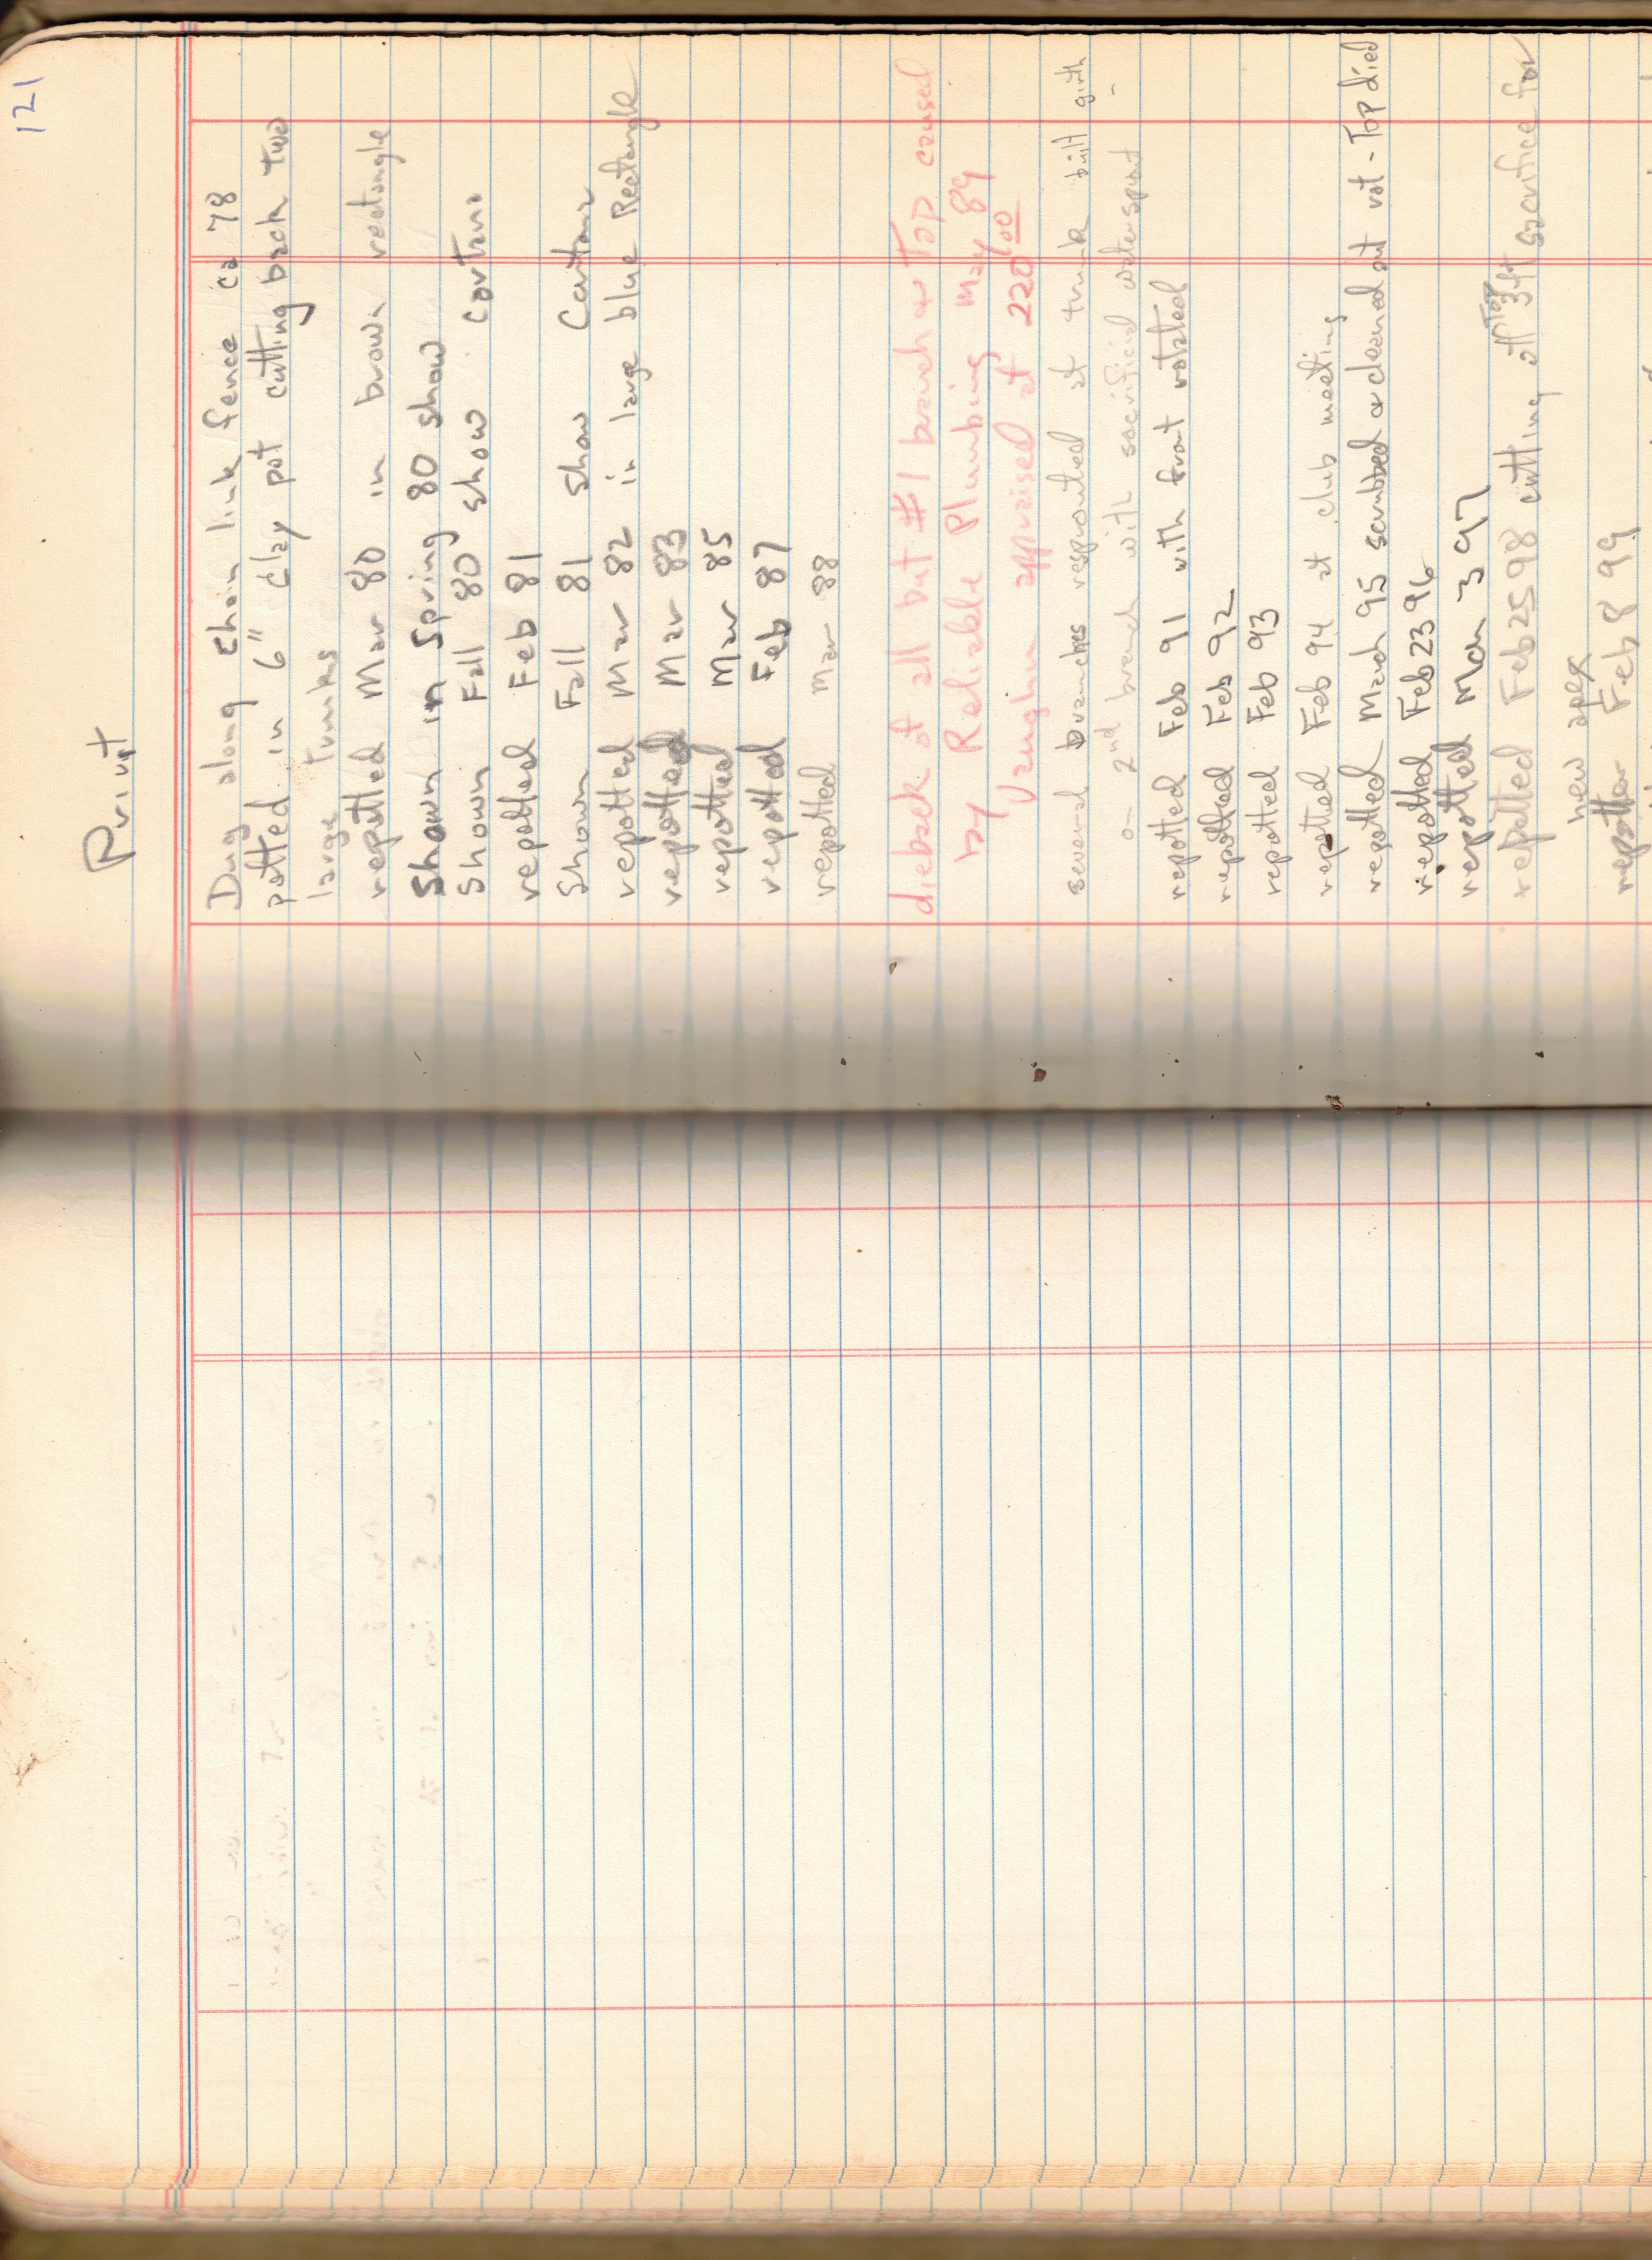 121
Privet
Dug along Chain link fence ca 78
potted in 6" clay pot cutting back two
large trunks
repotted Mar 80 in brown rectangle
Shown in Spring 80 show
Shown Fall 80 show
repotted Feb 81
Shown Fall 81 show
repotted Mar 82 in large blue Rectangle
repotted Mar 83
repotted Mar 85
repotted Feb 87
repotted Mar 88
dieback of all but #1 branch & Top caused
by Reliable Plumbing May 89
Vaughn appraised at 220 00
several branches resprouted at trunk built girth
on 2nd branch with sacrificial watersprout
repotted Feb 91 with front rotated
repotted Feb 92
repotted Feb 93
repotted Feb 94 at club meeting
repotted March 95 scrubbed & cleaned out rot - Top died
repotted Feb 23 96
repotted Mar 3 97
repotted Feb 25 98 cutting off Top 3ft sacrifice for
new apex
repotted Feb 8 99